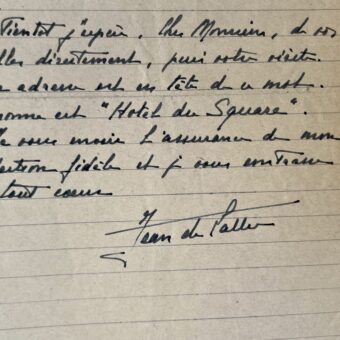 Bientot j'espère, Cher Monsieur, de vos
lles directement, puis votre visite.
adresse est en tête de ce mot.
onne est "Hotel du Square".
vous envoie l'assurance de mon
ection fidèle et je vous embrasse
tout coeur
Jean de